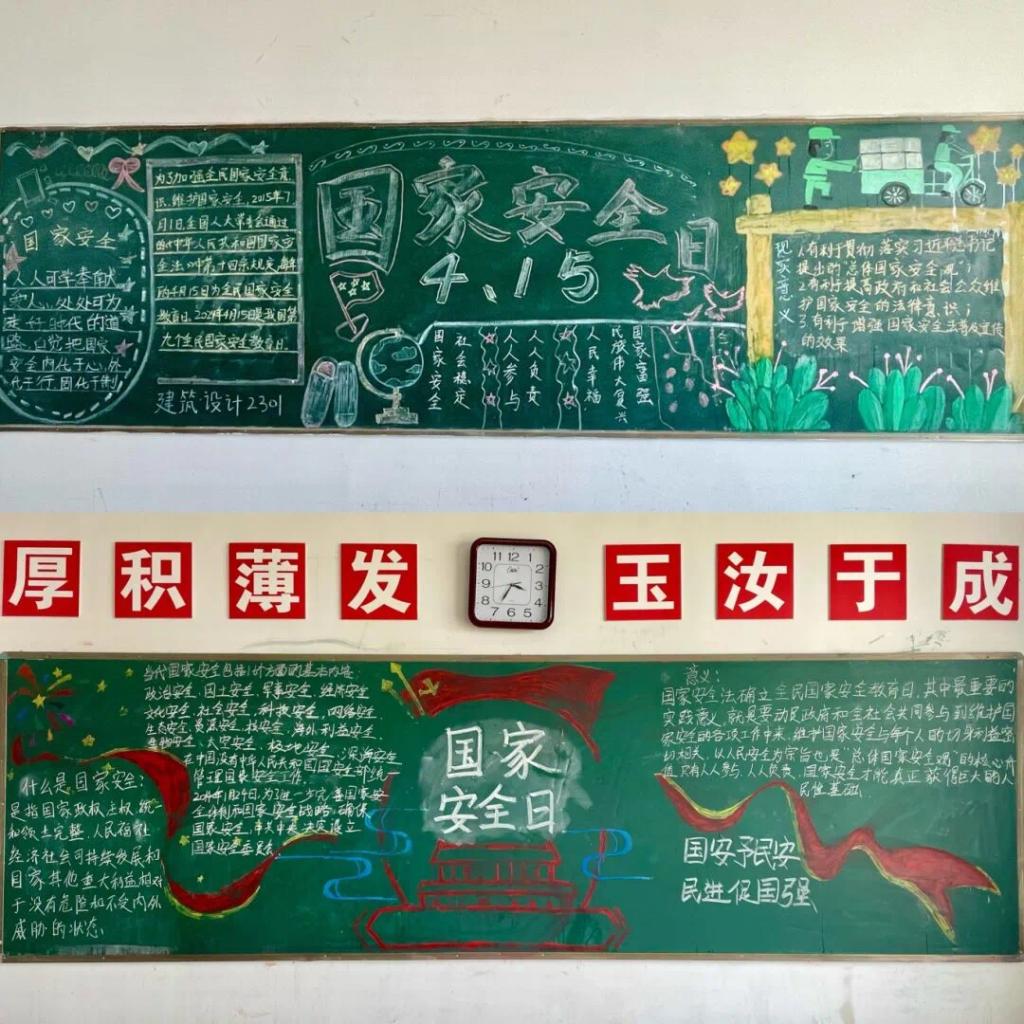 国家安全
人人可学奉献
处处可为
时代的道
自觉把国家
安全内化于心、外
化于行、固化于制
为了加强全民国家安全意
识,维护国家安全,2015年7
月1日全国人大常委会通过
的《中华人民共和国国家安
全法》中第十四条规定,每年
的4月15日为全民国家安全
教育日。2024年4月15日是我国第
九个全民国家安全教育日。
建筑设计2301
国家安全日
4.15
国家富强
民族伟大复兴
人民幸福
人人负责
人人参与
社会稳定
国家安全
现实意义
1.有利于贯彻落实习近平总书记
提出的"总体国家安全观";
2.有利于提高政府和社会公众维
护国家安全的法律意识;
3.有利于增强国家安全法普及宣传
的效果
厚积薄发
玉汝于成
11 12 1
10 2
9 3
8 4
7 6 5
什么是国家安全:
是指国家政权、主权、统一
和领土完整、人民福祉、
经济社会可持续发展和
国家其他重大利益相对
于没有危险和不受内外
威胁的状态
当代国家安全包括16个方面的基本内容:
政治安全、国土安全、军事安全、经济安全
文化安全、社会安全、科技安全、网络安全、
生态安全、资源安全、核安全、海外利益安全、
生物安全、太空安全、极地安全、深海安全
在中国设有中华人民共和国国家安全部统
管理国家安全工作。
2014年1月24日,为进一步完善国家安
全体制和国家安全战略,确保
国家安全,中共中央决定设立
国家安全委员会
国家
安全日
意义:
国家安全法确立全民国家安全教育日,其中最重要的
实践意义就是要动员政府和全社会共同参与到维护国
家安全的各项工作中来,维护国家安全与每个人的切身利益密
切相关,以人民安全为宗旨也是"总体国家安全观"的核心价
值,只有人人参与、人人负责,国家安全才能真正获得巨大的人
民性基础.
国安予民安
民进促国强